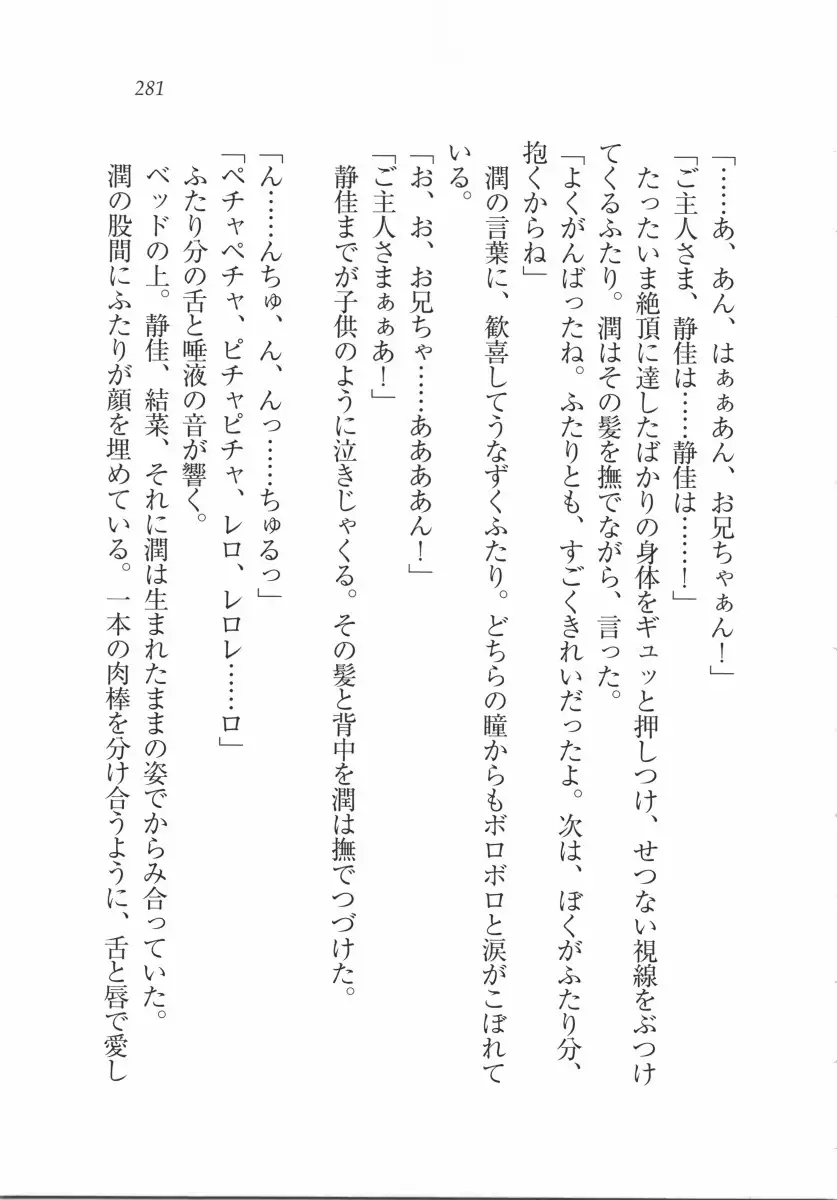 281
「……あ、あん、はぁぁあん、お兄ちゃぁん！」
「ご主人さま、静佳は……静佳は……！」
たったいま絶頂に達したばかりの身体をギュッと押しつけ、せつない視線をぶつけ
てくるふたり。潤はその髪を撫でながら、言った。
「よくがんばったね。ふたりとも、すごくきれいだったよ。次は、ぼくがふたり分、
抱くからね」
潤の言葉に、歓喜してうなずくふたり。どちらの瞳からもボロボロと涙がこぼれて
いる。
「お、お、お兄ちゃ……ああああん！」
「ご主人さまぁぁあ！」
静佳までが子供のように泣きじゃくる。その髪と背中を潤は撫でつづけた。
「ん……んちゅ、ん、んっ……ちゅるっ」
「ペチャペチャ、ピチャピチャ、レロ、レロレ……ロ」
ふたり分の舌と唾液の音が響く。
ベッドの上。静佳、結菜、それに潤は生まれたままの姿でからみ合っていた。
潤の股間にふたりが顔を埋めている。一本の肉棒を分け合うように、舌と唇で愛し